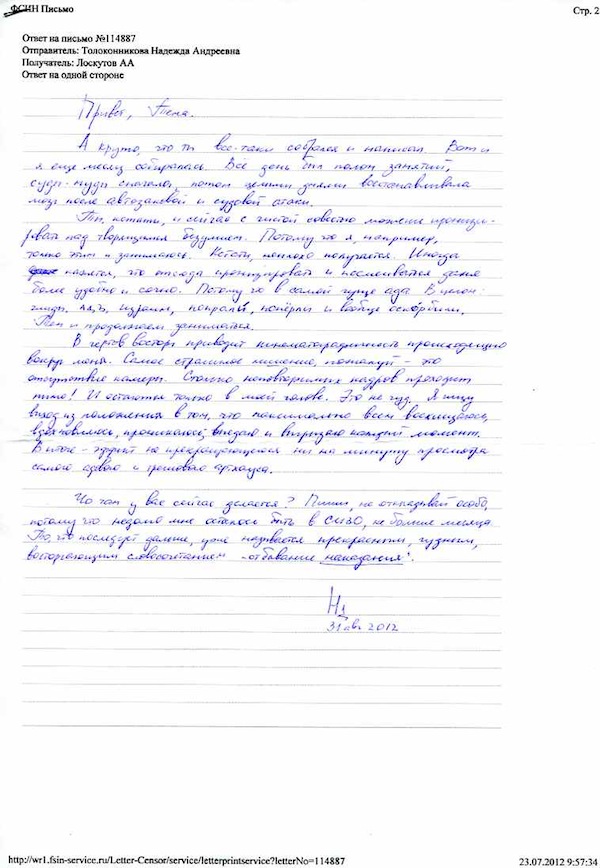 ФСИН Письмо
Стр. 2
Ответ на письмо №114887
Отправитель: Толоконникова Надежда Андреевна
Получатель: Лоскутов АА
Ответ на одной стороне
Привет, Тема.
А круто, что ты все-таки собрался и написал. Вот и
я еще месяц собиралась. Все дни был полон занятий,
суды-муды сначала, потом целыми днями восстанавливала
мозг после автозаковой и судовой атаки.
Ты, кстати, и сейчас с чистой совестью можешь иронизи-
ровать над творящимся безумием. Потому что я, например,
только этим и занималась. Кстати, неплохо получается. Иногда
кажется, что отсюда иронизировать и насмехаться даже
более удобно и сочно. Потому что в самой гуще ада.
и вообще оскорбили.
и продолжаем заниматься.
В чертов восторг приводит кинематографичность происходящего
вокруг меня. Самое страшное лишение, пожалуй - это
отсутствие камеры. Столько неповторимых кадров проходит
мимо! И остаются только в моей голове. Это не гуд. Я ищу
выход из положения в том, что максимально всем восхищаюсь,
вдохновляюсь, проникаюсь, впадаю и каждый момент.
В итоге - эффект не прекращающегося ни на минуту просмотра
самого адового и трешового артхауса.
Чо там у вас сейчас делается? Пиши, не откладывай особо,
потому что недолго мне осталось быть в СИЗО, не больше месяца.
То, что последует дальше, уже называется прекрасным, чудным,
восторгающим словосочетанием "отбывание наказания".
31 авг 2012
http://wr1.fsin-service.ru/Letter-Censor/service/letterprintservice?letterNo=114887
23.07.2012 9:57:34